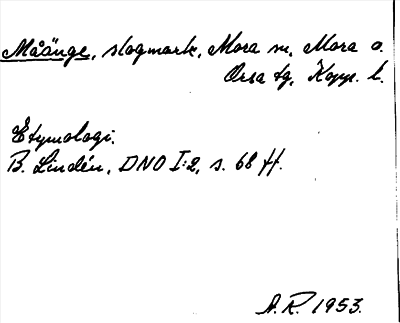 Måänge, slogmark, Mora sn, Mora o.
Orsa tg, Kopp. l.
Etymologi.
B. Lindén, DNO I:2, s. 68 ff.
A.R. 1953.